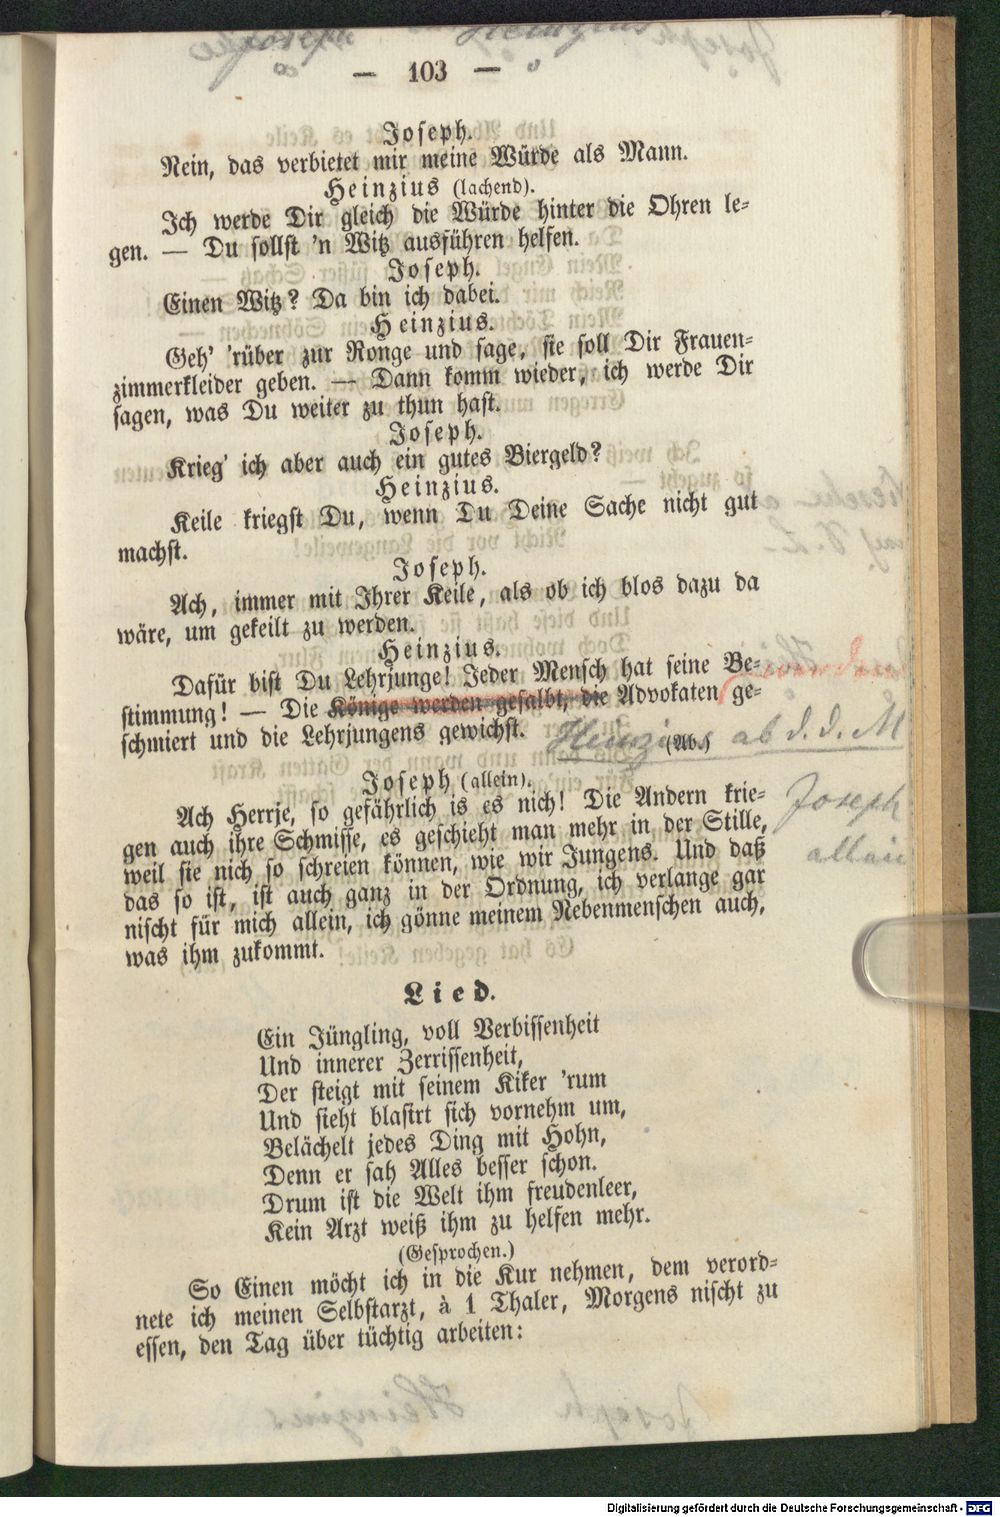 Joseph Heinzius
— 103 —
Joseph.
Nein, das verbietet mir meine Würde als Mann.
Heinzius (lachend).
Ich werde Dir gleich die Würde hinter die Ohren le-
gen. — Du sollst 'n Witz ausführen helfen.
Joseph.
Einen Witz? Da bin ich dabei.
Heinzius.
Geh' 'rüber zur Ronge und sage, sie soll Dir Frauen-
zimmerkleider geben. — Dann komm wieder, ich werde Dir
sagen, was Du weiter zu thun hast.
Joseph.
Krieg' ich aber auch ein gutes Biergeld?
Heinzius.
Keile kriegst Du, wenn Du Deine Sache nicht gut
machst.
Joseph.
Ach, immer mit Ihrer Keile, als ob ich blos dazu da
wäre, um gekeilt zu werden.
Heinzius.
Dafür bist Du Lehrjunge! Jeder Mensch hat seine Be-
stimmung! — Die Könige werden gesalbt, die Advokaten ge-
schmiert und die Lehrjungens gewichst.
(Ab.)
Heinzius ab d. d. M
Joseph (allein).
Joseph
allein
Ach Herrje, so gefährlich is es nich! Die Andern krie-
gen auch ihre Schmisse, es geschieht man mehr in der Stille,
weil sie nich so schreien können, wie wir Jungens. Und daß
das so ist, ist auch ganz in der Ordnung, ich verlange gar
nischt für mich allein, ich gönne meinem Nebenmenschen auch,
was ihm zukommt.
Lied.
Ein Jüngling, voll Verbissenheit
Und innerer Zerrissenheit,
Der steigt mit seinem Kiker 'rum
Und sieht blasirt sich vornehm um,
Belächelt jedes Ding mit Hohn,
Denn er sah Alles besser schon.
Drum ist die Welt ihm freudenleer,
Kein Arzt weiß ihm zu helfen mehr.
(Gesprochen.)
So Einen möcht ich in die Kur nehmen, dem verord-
nete ich meinen Selbstarzt, à 1 Thaler, Morgens nischt zu
essen, den Tag über tüchtig arbeiten:
Digitalisierung gefördert durch die Deutsche Forschungsgemeinschaft - DFG